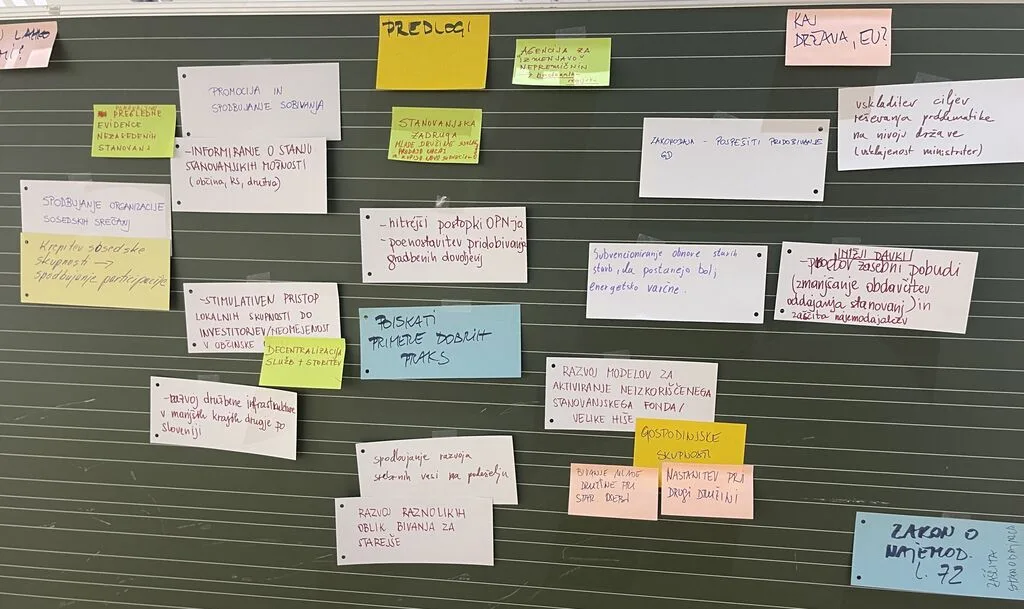 PREDLOGI
KAJ
DRŽAVA, EU?
AGENCIJA ZA
IZMENJAVO
NEPREMIČNIN
PROMOCIJA IN
SPODBUJANJE SOBIVANJA
PREGLEDNE
EVIDENCE
NEZASEDENIH
STANOVANJ
-INFORMIRANJE O STANJU
STANOVANJSKIH MOŽNOSTI
(občina, KS, društva)
STANOVANJSKA
ZADRUGA
MLADE DRUŽINE
ZAKONODAJA - POSPEŠITI PRIDOBIVANJE
GD
uskladitev ciljev
reševanja problematike
na nivoju države
(usklajenost ministrstev)
SPODBUJANJE ORGANIZACIJE
SOSEDSKIH SREČANJ
Krepitev sosedske
skupnosti →
spodbujanje participacije
- hitrejši postopki OPN-ja
- poenostavitev pridobivanja
gradbenih dovoljenj
Subvencioniranje obnove starih
stavb, da postanejo bolj
energetsko varčne..
NIŽJI DAVKI
zasebni pobudi
(zmanjšanje obdavčitev
oddajanja stanovanj) in
zaščita najemodajalcev
-STIMULATIVEN PRISTOP
LOKALNIH SKUPNOSTI DO
INVESTITORJEV/NEOMEJENOST
V OBČINSKE
DECENTRALIZACIJA
SLUŽB + STORITEV
POISKATI
PRIMERE DOBRIH
PRAKS
- razvoj družbene infrastrukture
v manjših krajih drugje po
Sloveniji
RAZVOJ MODELOV ZA
AKTIVIRANJE NEIZKORIŠČENEGA
STANOVANJSKEGA FONDA/
VELIKE HIŠE
GOSPODINJSKE
SKUPNOSTI
BIVANJE MLADE
DRUŽINE PRI
NASTANITEV PRI
DRUGI DRUŽINI
spodbujanje razvoja
srebrnih vasi na podeželju
RAZVOJ RAZNOLIKIH
OBLIK BIVANJA ZA
STAREJŠE
ZAKON O
NAJEMOD.
L. 72
ZAŠČITA